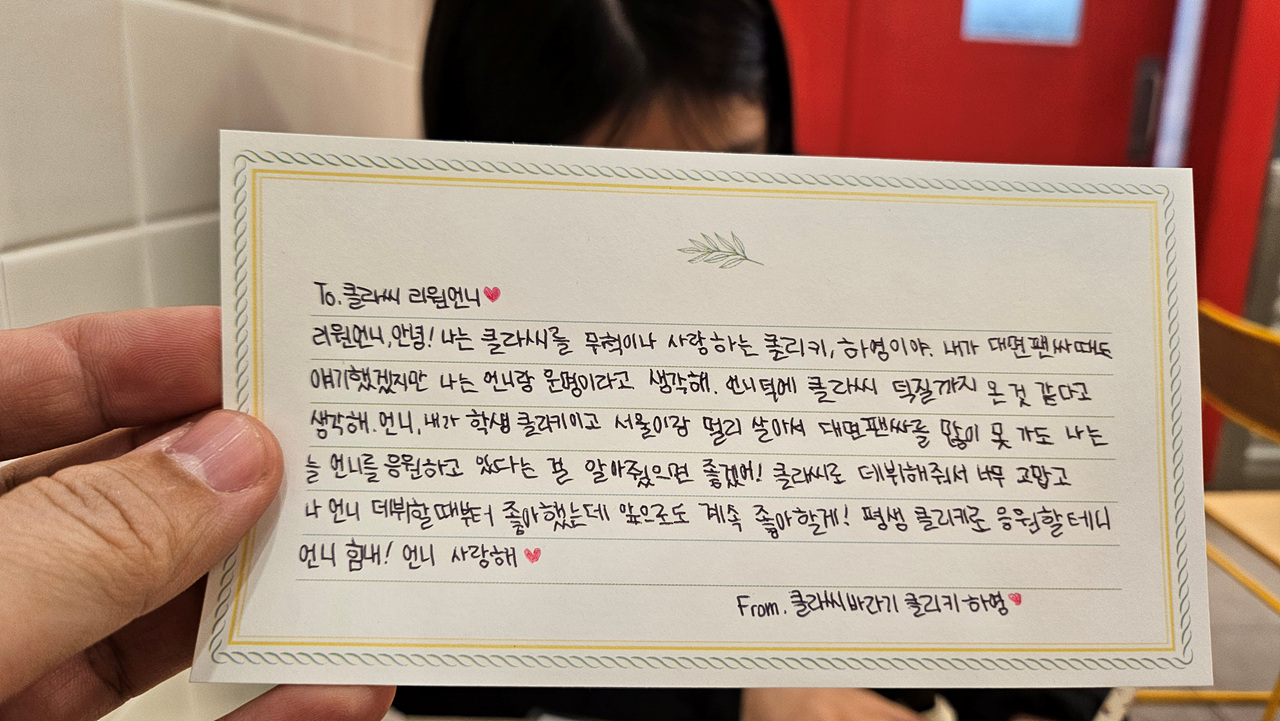 To. 클라씨 리원언니
리원언니, 안녕! 나는 클라씨를 무척이나 사랑하는 클리키, 하영이야. 내가 대면팬싸때도
얘기했겠지만 나는 언니랑 운명이라고 생각해. 언니덕에 클라씨 덕질까지 온 것 같다고
생각해. 언니, 내가 학생 클리키이고 서울이랑 멀리 살아서 대면팬싸를 많이 못 가도 나는
늘 언니를 응원하고 있다는 걸 알아줬으면 좋겠어! 클라씨로 데뷔해줘서 너무 고맙고
나 언니 데뷔할때부터 좋아했는데 앞으로도 계속 좋아할게! 평생 클리키로 응원할테니
언니 힘내! 언니 사랑해
From. 클라씨바라기 클리키 하영